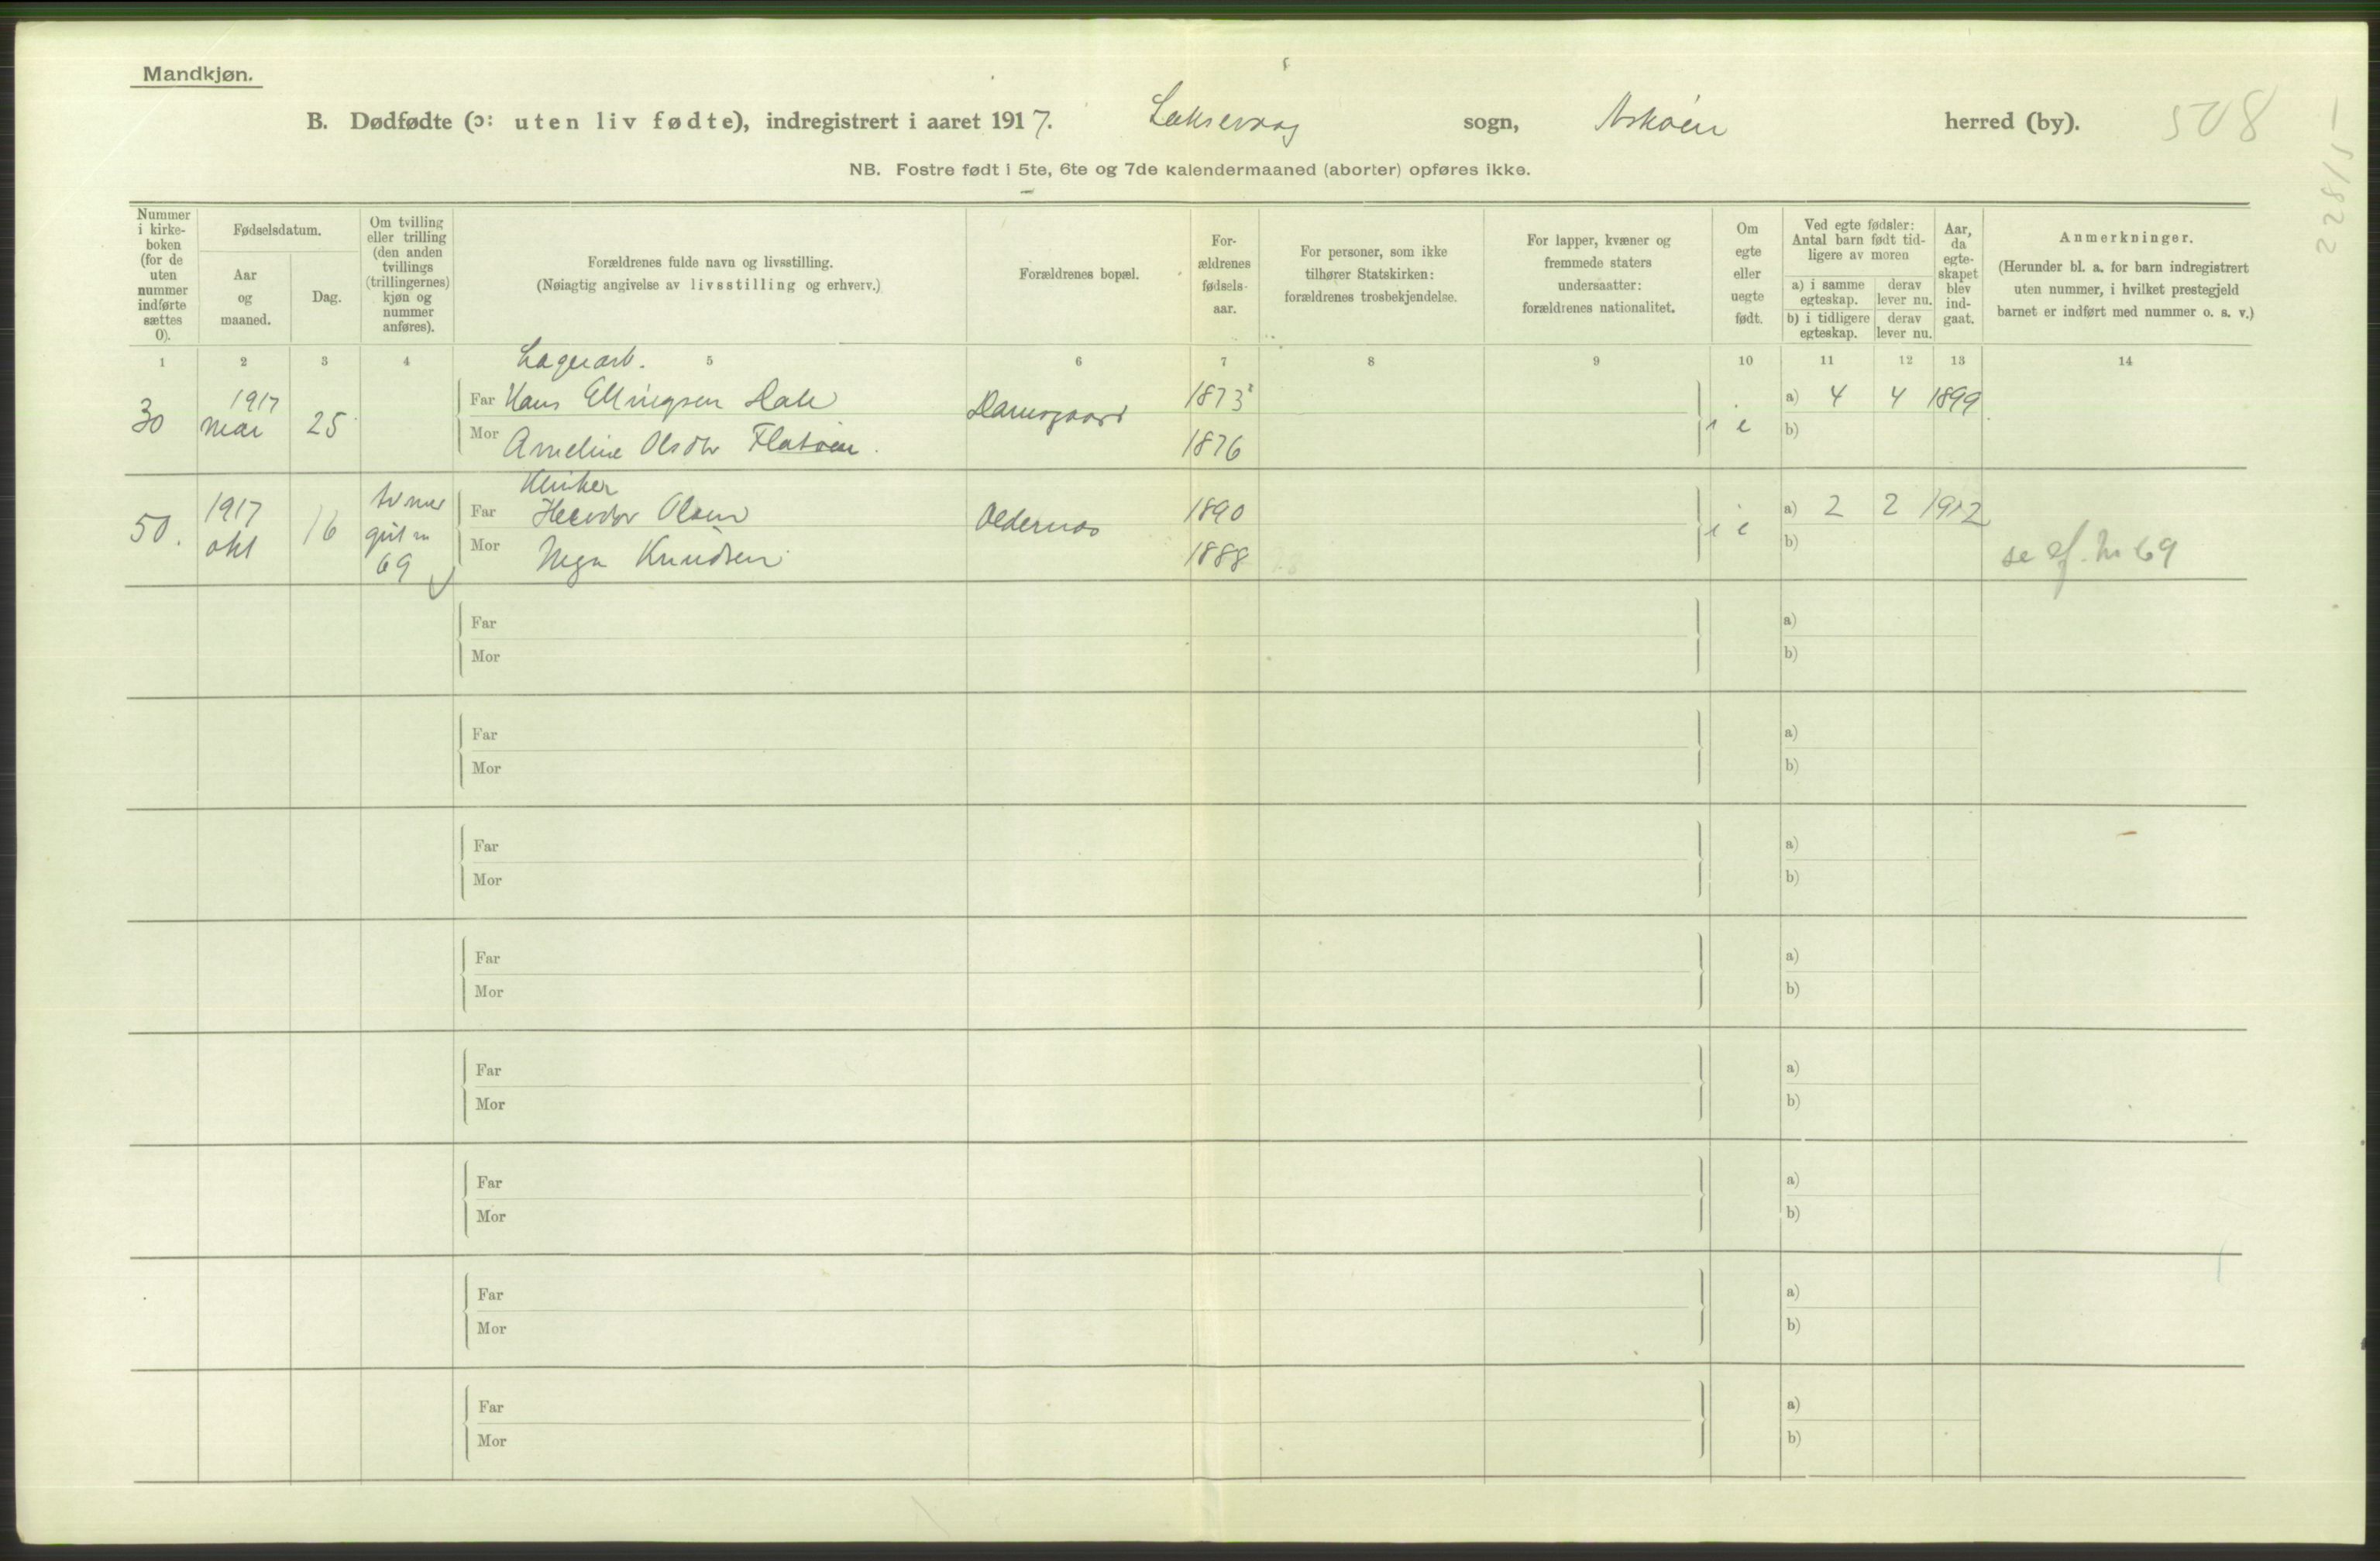 Mandkjøn.
B. Dødfødte (ɔ: uten liv fødte), indregistrert i aaret 1917. Laksevaag sogn, Askøen herred (by). 508
228/5 -
NB. Fostre født i 5te, 6te og 7de kalendermaaned (aborter) opføres ikke.
Nummer i kirke-boken (for de uten nummer indførte sættes 0).
Fødselsdatum.
Aar og maaned.
Dag.
Om tvilling eller trilling (den anden tvillings (trillingernes) kjøn og nummer anføres).
Forældrenes fulde navn og livsstilling.
(Nøiagtig angivelse av livsstilling og erhverv.)
Forældrenes bopæl.
For-ældrenes fødsels-aar.
For personer, som ikke tilhører Statskirken: forældrenes trosbekjendelse.
For lapper, kvæner og fremmede staters undersaatter: forældrenes nationalitet.
Om egte eller uegte født.
Ved egte fødsler: Antal barn født tid-ligere av moren
a) i samme egteskap.
derav lever nu.
b) i tidligere egteskap.
derav lever nu.
Aar, da egte-skapet blev ind-gaat.
Anmerkninger.
(Herunder bl. a. for barn indregistrert uten nummer, i hvilket prestegjeld barnet er indført med nummer o. s. v.)
1 2 3 4 5 6 7 8 9 10 11 12 13 14
Lagerarb.
30 1917 mai 25 Far Hans Ellingsen Dale Damsgaard 1873 i e a) 4 4 1899
Mor Ameline Olsdtr Flatøen. 1876 b)
Klinker
50. 1917 okt 16 tv med gut n 69 Far Olsen Oldernes 1890 i e a) 2 2 1912
Mor Knudsen 1888 b) se lf. nr 69
Far a)
Mor b)
Far a)
Mor b)
Far a)
Mor b)
Far a)
Mor b)
Far a)
Mor b)
Far a)
Mor b)
Far a)
Mor b)
Far a)
Mor b)